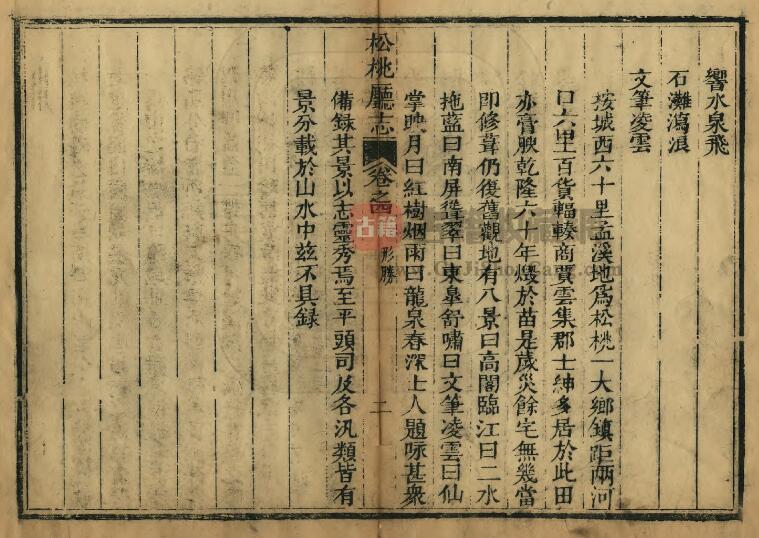 響水泉飛
石灘瀉浪
文筆凌雲
按城西六十里孟溪地爲松桃一大鄉鎮距兩河
口六里百貨輻輳商賈雲集郡士紳多居於此田
亦膏腴乾隆六十年燬於苗是歲災餘宅無幾當
即修葺仍復舊觀地有八景曰高閣臨江曰二水
拖藍曰南屏聳翠曰東皋舒嘯曰文筆凌雲曰仙
掌映月曰紅樹烟雨曰龍泉春深士人題咏甚衆
松桃廳志
卷之四
形勝
二
備録其景以志靈秀焉至平頭司及各汛類皆有
景分載於山水中茲不具録
古籍